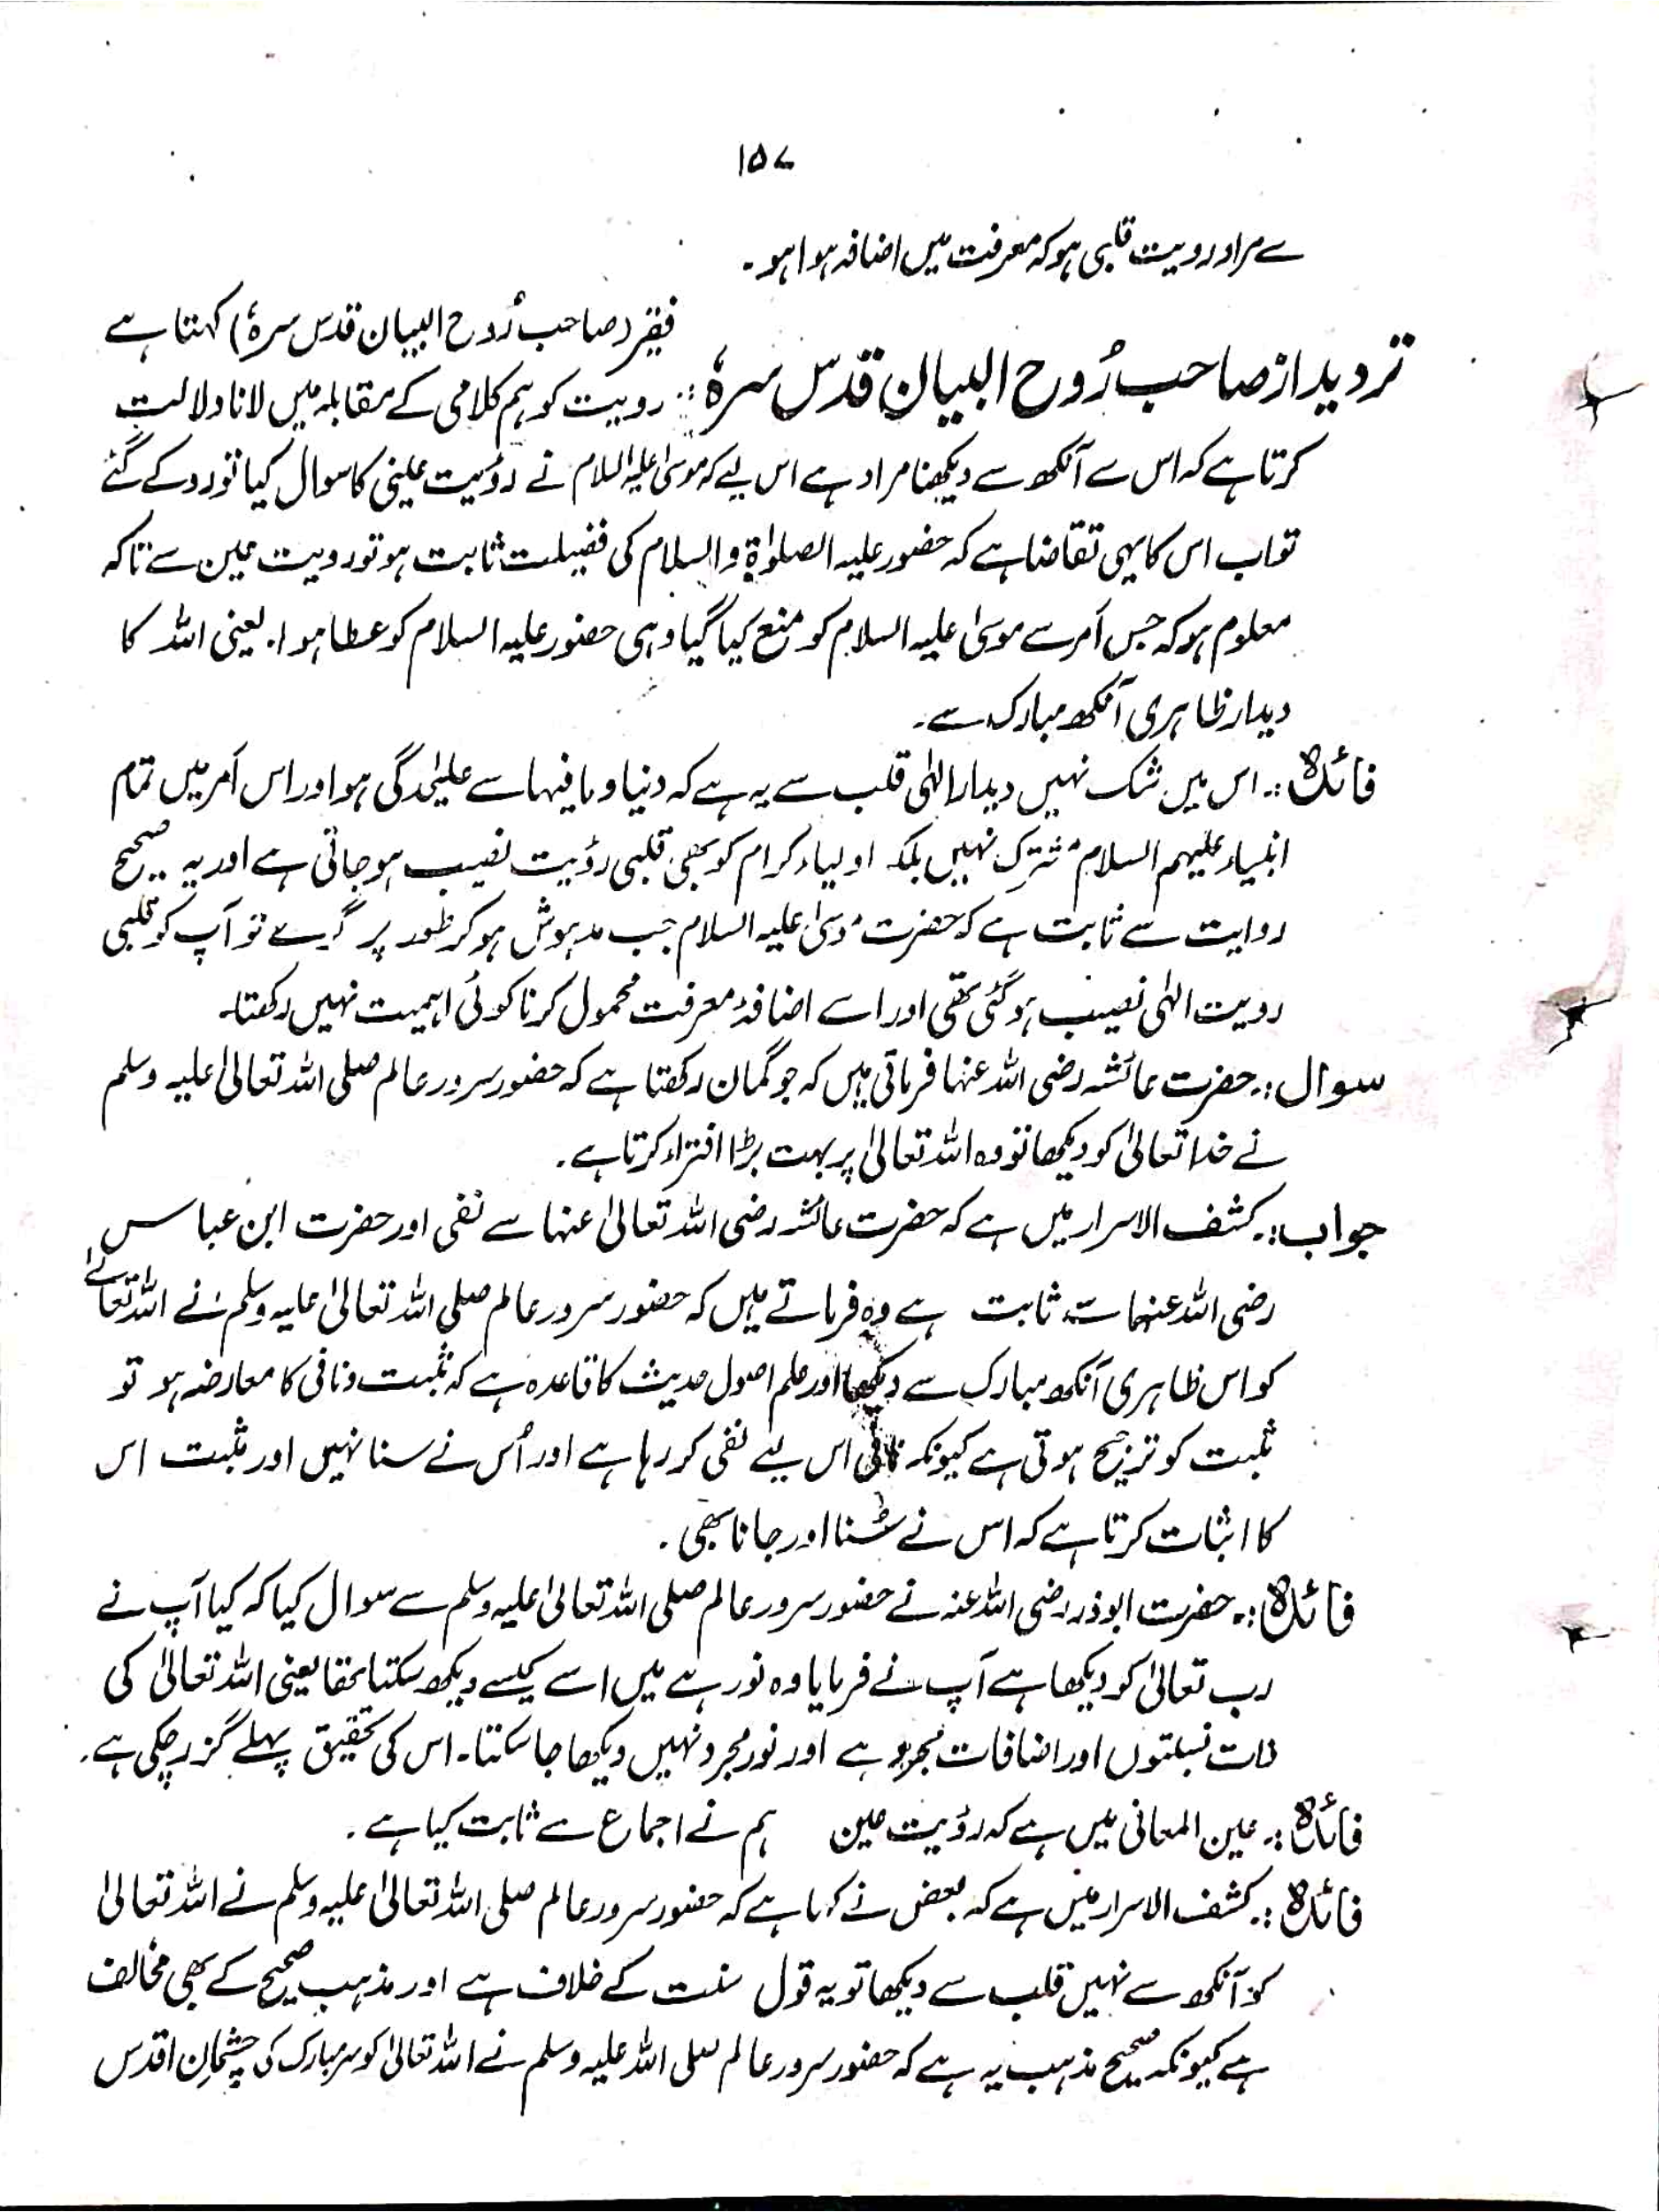 ۱۵۷
سے مراد رویت قلبی ہو کہ معرفت میں اضافہ ہوا ہو۔
تردید از صاحب رُوح البیان قدس سرہٗ :: فقیر (صاحب رُوح البیان قدس سرہٗ) کہتا ہے
رویت کو ہم کلامی کے مقابلہ میں لانا دلالت
کرتا ہے کہ اس سے آنکھ سے دیکھنا مراد ہے اس لیے کہ موسیٰ علیہ السلام نے رؤیت عینی کا سوال کیا تو روکے گئے
تو اب اس کا یہی تقاضا ہے کہ حضور علیہ الصلوٰۃ والسلام کی فضیلت ثابت ہو تو رویت عین سے تاکہ
معلوم ہو کہ جس اَمر سے موسیٰ علیہ السلام کو منع کیا گیا وہی حضور علیہ السلام کو عطا ہوا۔ یعنی اللہ کا
دیدار ظاہری آنکھ مبارک سے۔
فائدہ :۔ اس میں شک نہیں دیدار الٰہی قلب سے یہ ہے کہ دنیا و مافیہا سے علیٰحدگی ہو اور اس اَمر میں تمام
انبیاء علیہم السلام مشترک نہیں بلکہ اولیاء کرام کو بھی قلبی رؤیت نصیب ہو جاتی ہے اور یہ صحیح
روایت سے ثابت ہے کہ حضرت موسیٰ علیہ السلام جب مدہوش ہو کر طور پر گرے تو آپ کو قلبی
رویت الٰہی نصیب ہو گئی تھی اور اسے اضافۂ معرفت محمول کرنا کوئی اہمیت نہیں رکھتا۔
سوال :۔ حضرت عائشہ رضی اللہ عنہا فرماتی ہیں کہ جو گمان رکھتا ہے کہ حضور سرور عالم صلی اللہ تعالیٰ علیہ وسلم
نے خدا تعالیٰ کو دیکھا تو وہ اللہ تعالیٰ پر بہت بڑا افتراء کرتا ہے۔
جواب :۔ کشف الاسرار میں ہے کہ حضرت عائشہ رضی اللہ تعالیٰ عنہا سے نفی اور حضرت ابن عباس
رضی اللہ عنہما سے ثابت ہے وہ فرماتے ہیں کہ حضور سرور عالم صلی اللہ تعالیٰ علیہ وسلم نے اللہ تعالےٰ
کو اس ظاہری آنکھ مبارک سے دیکھا اور علم اصول حدیث کا قاعدہ ہے کہ مثبت و نافی کا معارضہ ہو تو
مثبت کو ترجیح ہوتی ہے کیونکہ نافی اس لیے نفی کر رہا ہے اور اُس نے سنا نہیں اور مثبت اس
کا اثبات کرتا ہے کہ اس نے سُنا اور جانا بھی۔
فائدہ :۔ حضرت ابوذر رضی اللہ عنہ نے حضور سرور عالم صلی اللہ تعالیٰ علیہ وسلم سے سوال کیا کہ کیا آپ نے
رب تعالیٰ کو دیکھا ہے آپ نے فرمایا وہ نور ہے میں اسے کیسے دیکھ سکتا تھا یعنی اللہ تعالیٰ کی
ذات نسبتوں اور اضافات مجرد ہے اور نور مجرد نہیں دیکھا جا سکتا۔ اس کی تحقیق پہلے گزر چکی ہے۔
فائدہ :۔ عین المعانی میں ہے کہ رؤیت عین ہم نے اجماع سے ثابت کیا ہے۔
فائدہ :۔ کشف الاسرار میں ہے کہ بعض نے کہا ہے کہ حضور سرور عالم صلی اللہ تعالیٰ علیہ وسلم نے اللہ تعالیٰ
کو آنکھ سے نہیں قلب سے دیکھا تو یہ قول سنت کے خلاف ہے اور مذہب صحیح کے بھی مخالف
ہے کیونکہ صحیح مذہب یہ ہے کہ حضور سرور عالم صلی اللہ علیہ وسلم نے اللہ تعالیٰ کو سر مبارک کی چشمانِ اقدس